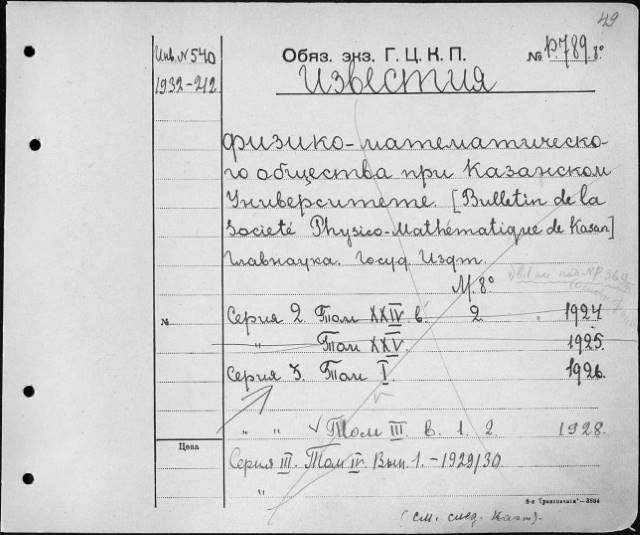 49
Инв. N 540
1932-212
Обяз. экз. Г. Ц. К. П.
№ р.789.8°
Известия
физико-математическо-
го общества при Казанском
Университете. [Bulletin de la
Societé Physico-Mathématique de Kasan]
Главнаука. Госуд. Издт.
М. 8°
№
Серия 2. Том XXIV в. 2 1924
" Том XXV. 1925
Серия 3. Том I. 1926
" " √ Том III. в. 1. 2 1928.
Цена
Серия III. Том IV. Вып. 1. - 1929/30.
"
(см. след. карт).